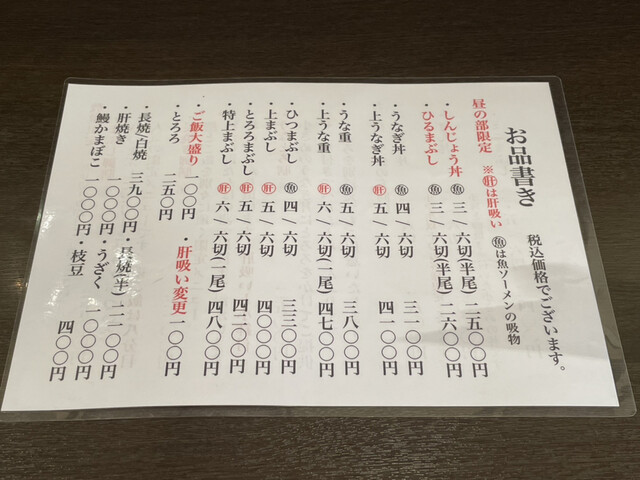 お品書き
税込価格でございます。
昼の部限定 ※㊋肝は肝吸い ㊋魚は魚ソーメンの吸物
・しんじょう丼 魚 三/六切(半尾) 二五〇〇円
・ひるまぶし 魚 三/六切(半尾) 二六〇〇円
・うなぎ丼 魚 四/六切 三一〇〇円
・上うなぎ丼 肝 五/六切 四一〇〇円
・うな重 魚 五/六切 三八〇〇円
・上うな重 肝 六/六切(一尾) 四七〇〇円
・ひつまぶし 魚 四/六切 三三〇〇円
・上まぶし 肝 五/六切 四〇〇〇円
・とろろまぶし 肝 五/六切 四二〇〇円
・特上まぶし 肝 六/六切(一尾) 四八〇〇円
・ご飯大盛り 一〇〇円 ・肝吸い変更 一〇〇円
・とろろ 二五〇円
・長焼/白焼 三九〇〇円 ・長焼(半) 二一〇〇円
・肝焼き 一〇〇〇円 ・うざく 一〇〇〇円
・鰻かまぼこ 一〇〇〇円 ・枝豆 四〇〇円